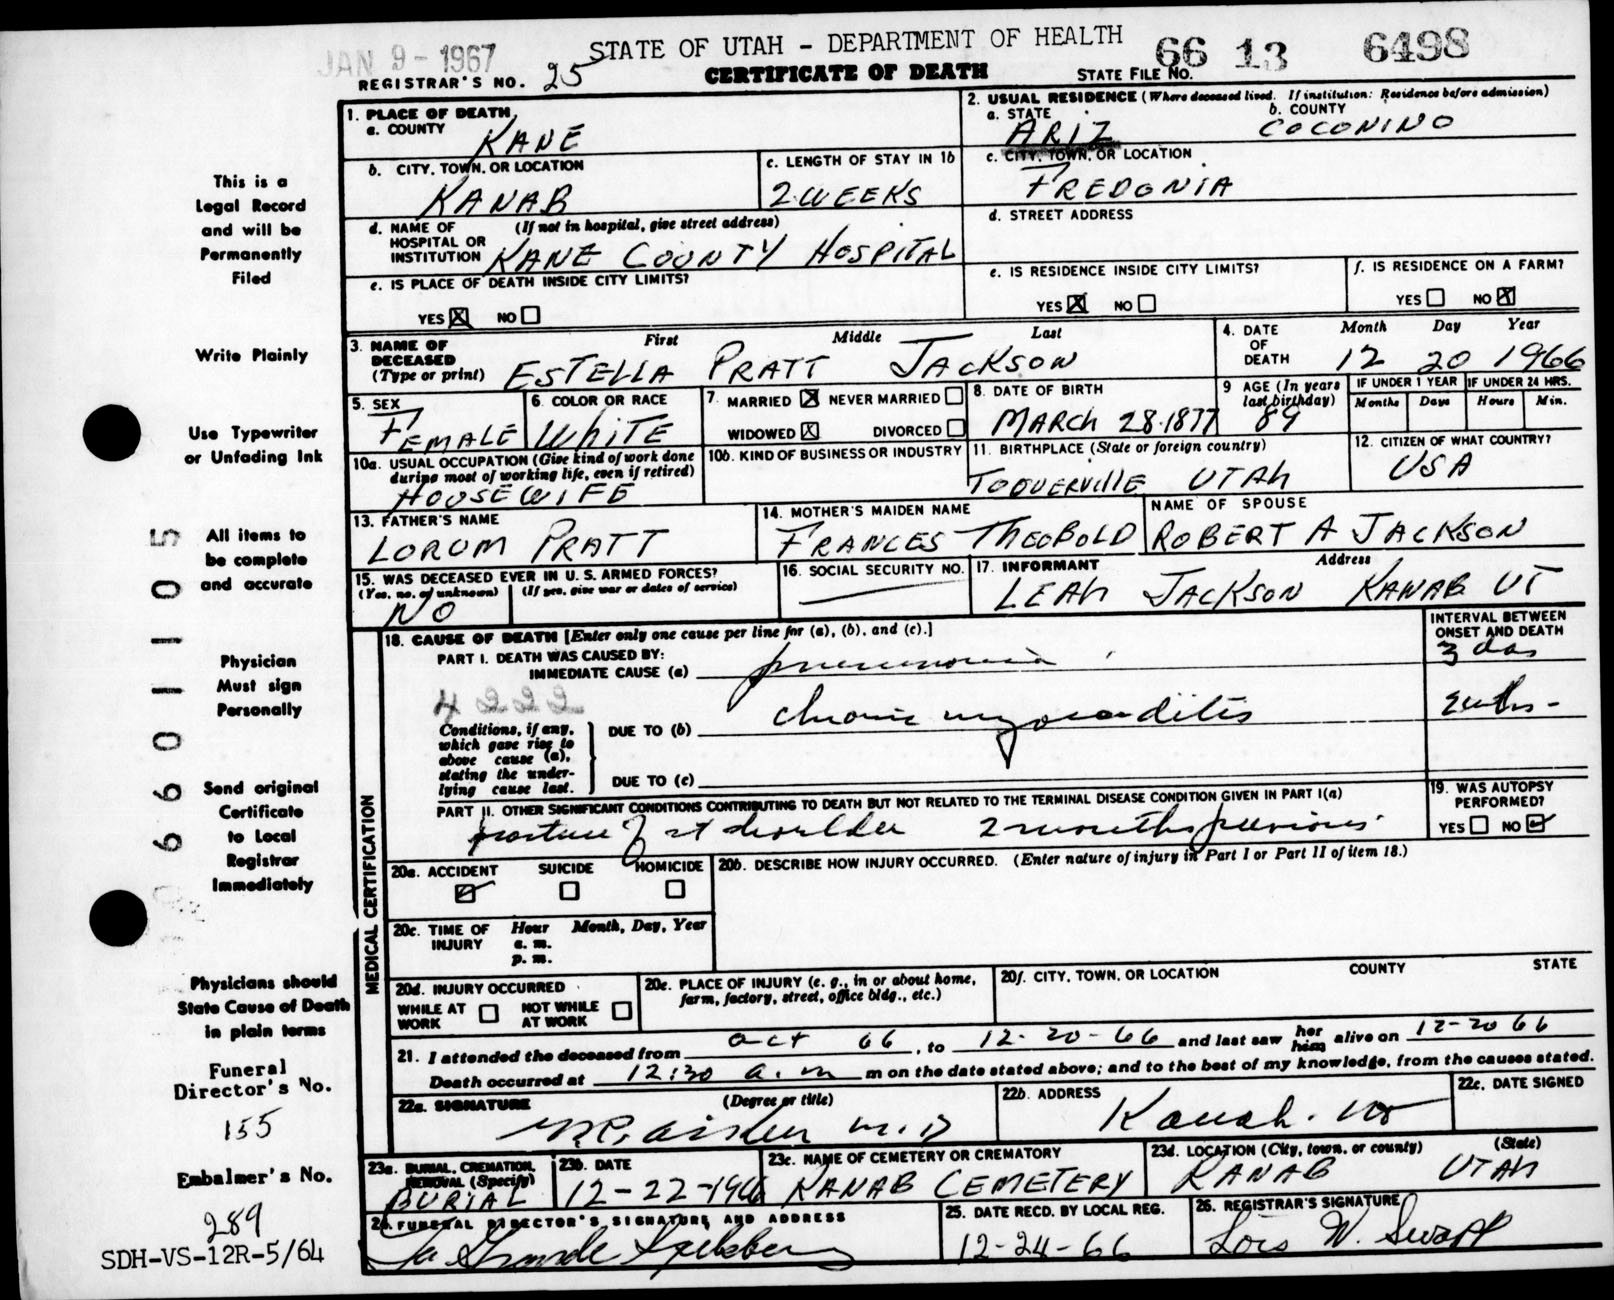 JAN 9 - 1967
STATE OF UTAH - DEPARTMENT OF HEALTH
66 13 6498
REGISTRAR'S NO. 25
CERTIFICATE OF DEATH
STATE FILE NO.
1. PLACE OF DEATH
a. COUNTY
KANE
2. USUAL RESIDENCE (Where deceased lived. If institution: Residence before admission)
a. STATE
ARIZ
b. COUNTY
COCONINO
b. CITY, TOWN, OR LOCATION
KANAB
c. LENGTH OF STAY IN 1b
2 WEEKS
c. CITY, TOWN, OR LOCATION
FREDONIA
d. NAME OF HOSPITAL OR INSTITUTION
(If not in hospital, give street address)
KANE COUNTY HOSPITAL
d. STREET ADDRESS
e. IS PLACE OF DEATH INSIDE CITY LIMITS?
YES X NO
e. IS RESIDENCE INSIDE CITY LIMITS?
YES X NO
f. IS RESIDENCE ON A FARM?
YES NO X
3. NAME OF DECEASED (Type or print)
First Middle Last
ESTELLA PRATT JACKSON
4. DATE OF DEATH
Month Day Year
12 20 1966
5. SEX
FEMALE
6. COLOR OR RACE
WHITE
7. MARRIED X NEVER MARRIED
WIDOWED X DIVORCED
8. DATE OF BIRTH
MARCH 28-1877
9 AGE (In years last birthday)
89
IF UNDER 1 YEAR
Months Days
IF UNDER 24 HRS.
Hours Min.
10a. USUAL OCCUPATION (Give kind of work done during most of working life, even if retired)
HOUSEWIFE
10b. KIND OF BUSINESS OR INDUSTRY
11. BIRTHPLACE (State or foreign country)
TOQUERVILLE UTAH
12. CITIZEN OF WHAT COUNTRY?
USA
13. FATHER'S NAME
LORUM PRATT
14. MOTHER'S MAIDEN NAME
FRANCES THEOBOLD
NAME OF SPOUSE
ROBERT A JACKSON
15. WAS DECEASED EVER IN U. S. ARMED FORCES?
(Yes, no, of unknown) (If yes, give war or dates of service)
NO
16. SOCIAL SECURITY NO.
17. INFORMANT Address
LEAH JACKSON KANAB UT
MEDICAL CERTIFICATION
18. CAUSE OF DEATH [Enter only one cause per line for (a), (b), and (c).]
INTERVAL BETWEEN ONSET AND DEATH
PART I. DEATH WAS CAUSED BY:
IMMEDIATE CAUSE (a) pneumonia
3 das
4222
Conditions, if any, which gave rise to above cause (a), stating the underlying cause last.
DUE TO (b) chronic myocarditis
DUE TO (c)
PART II. OTHER SIGNIFICANT CONDITIONS CONTRIBUTING TO DEATH BUT NOT RELATED TO THE TERMINAL DISEASE CONDITION GIVEN IN PART I(a)
fracture of rt shoulder 2 months previous
19. WAS AUTOPSY PERFORMED?
YES NO
20a. ACCIDENT SUICIDE HOMICIDE
20b. DESCRIBE HOW INJURY OCCURRED. (Enter nature of injury in Part I or Part II of item 18.)
20c. TIME OF INJURY
Hour Month, Day, Year
a. m.
p. m.
20d. INJURY OCCURRED
WHILE AT WORK NOT WHILE AT WORK
20e. PLACE OF INJURY (e. g., in or about home, farm, factory, street, office bldg., etc.)
20f. CITY, TOWN, OR LOCATION COUNTY STATE
21. I attended the deceased from oct 66, to 12-20-66 and last saw her him alive on 12-20 66
Death occurred at 12:30 a.m m on the date stated above; and to the best of my knowledge, from the causes stated.
22a. SIGNATURE (Degree or title)
Aiken M.D
22b. ADDRESS
Kanab. Ut
22c. DATE SIGNED
23a. BURIAL, CREMATION, REMOVAL (Specify)
BURIAL
23b. DATE
12-22-1966
23c. NAME OF CEMETERY OR CREMATORY
KANAB CEMETERY
23d. LOCATION (City, town, or county) (State)
KANAB UTAH
24. FUNERAL DIRECTOR'S SIGNATURE AND ADDRESS
25. DATE RECD. BY LOCAL REG.
12-24-66
26. REGISTRAR'S SIGNATURE
Lois W. Swapp
This is a
Legal Record
and will be
Permanently
Filed
Write Plainly
Use Typewriter
or Unfading Ink
All items to
be complete
and accurate
Physician
Must sign
Personally
Send original
Certificate
to Local
Registrar
Immediately
Physicians should
State Cause of Death
in plain terms
Funeral
Director's No.
155
Embalmer's No.
289
SDH-VS-12R-5/64
6601105